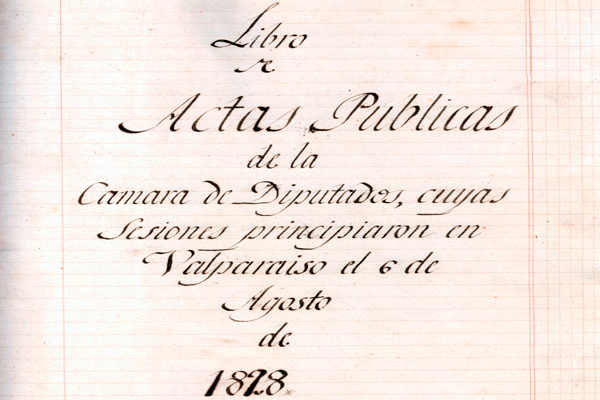 Libro
de
Actas Publicas
de la
Camara de Diputados, cuyas
Sesiones principiaron en
Valparaiso el 6 de
Agosto
de
1828.